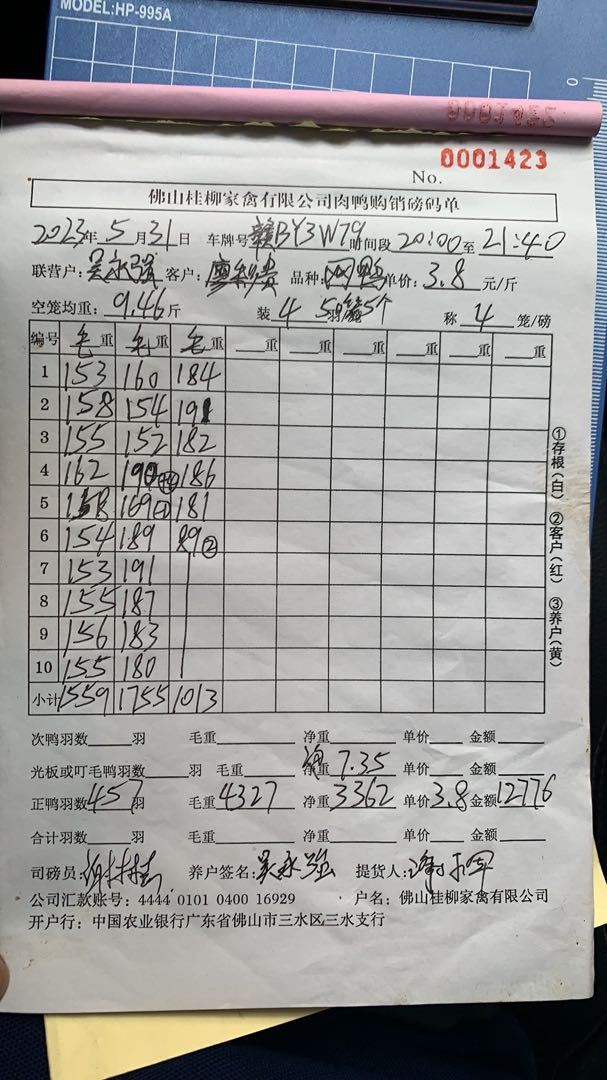 MODEL:HP-995A
0001423
No.
佛山桂柳家禽有限公司肉鸭购销磅码单
2023年5月31日 车牌号赣BY3W79时间段20:00至21:40
联营户:吴永强 客户:廖 贵 品种: 鸭 单价:3.8元/斤
空笼均重:9.46斤 装4 5羽 5个 称4笼/磅
编号 毛重 毛重 毛重 重 重 重 重
1 153 160 184
2 158 154 191
3 155 152 182
4 162 190 186
5 158 169 181
6 154 189 89②
7 153 191
8 155 187
9 156 183
10 155 180
小计 1559 1755 1013
①存根(白) ②客户(红) ③养户(黄)
次鸭羽数 羽 毛重 净重 单价 金额
光板或叮毛鸭羽数 羽 毛重 净重 7.35 单价 金额
正鸭羽数457羽 毛重4327 净重3362 单价3.8 金额12776
合计羽数 羽 毛重 净重 单价 金额
司磅员: 养户签名:吴永强 提货人:
公司汇款账号:4444 0101 0400 16929 户名:佛山桂柳家禽有限公司
开户行:中国农业银行广东省佛山市三水区三水支行